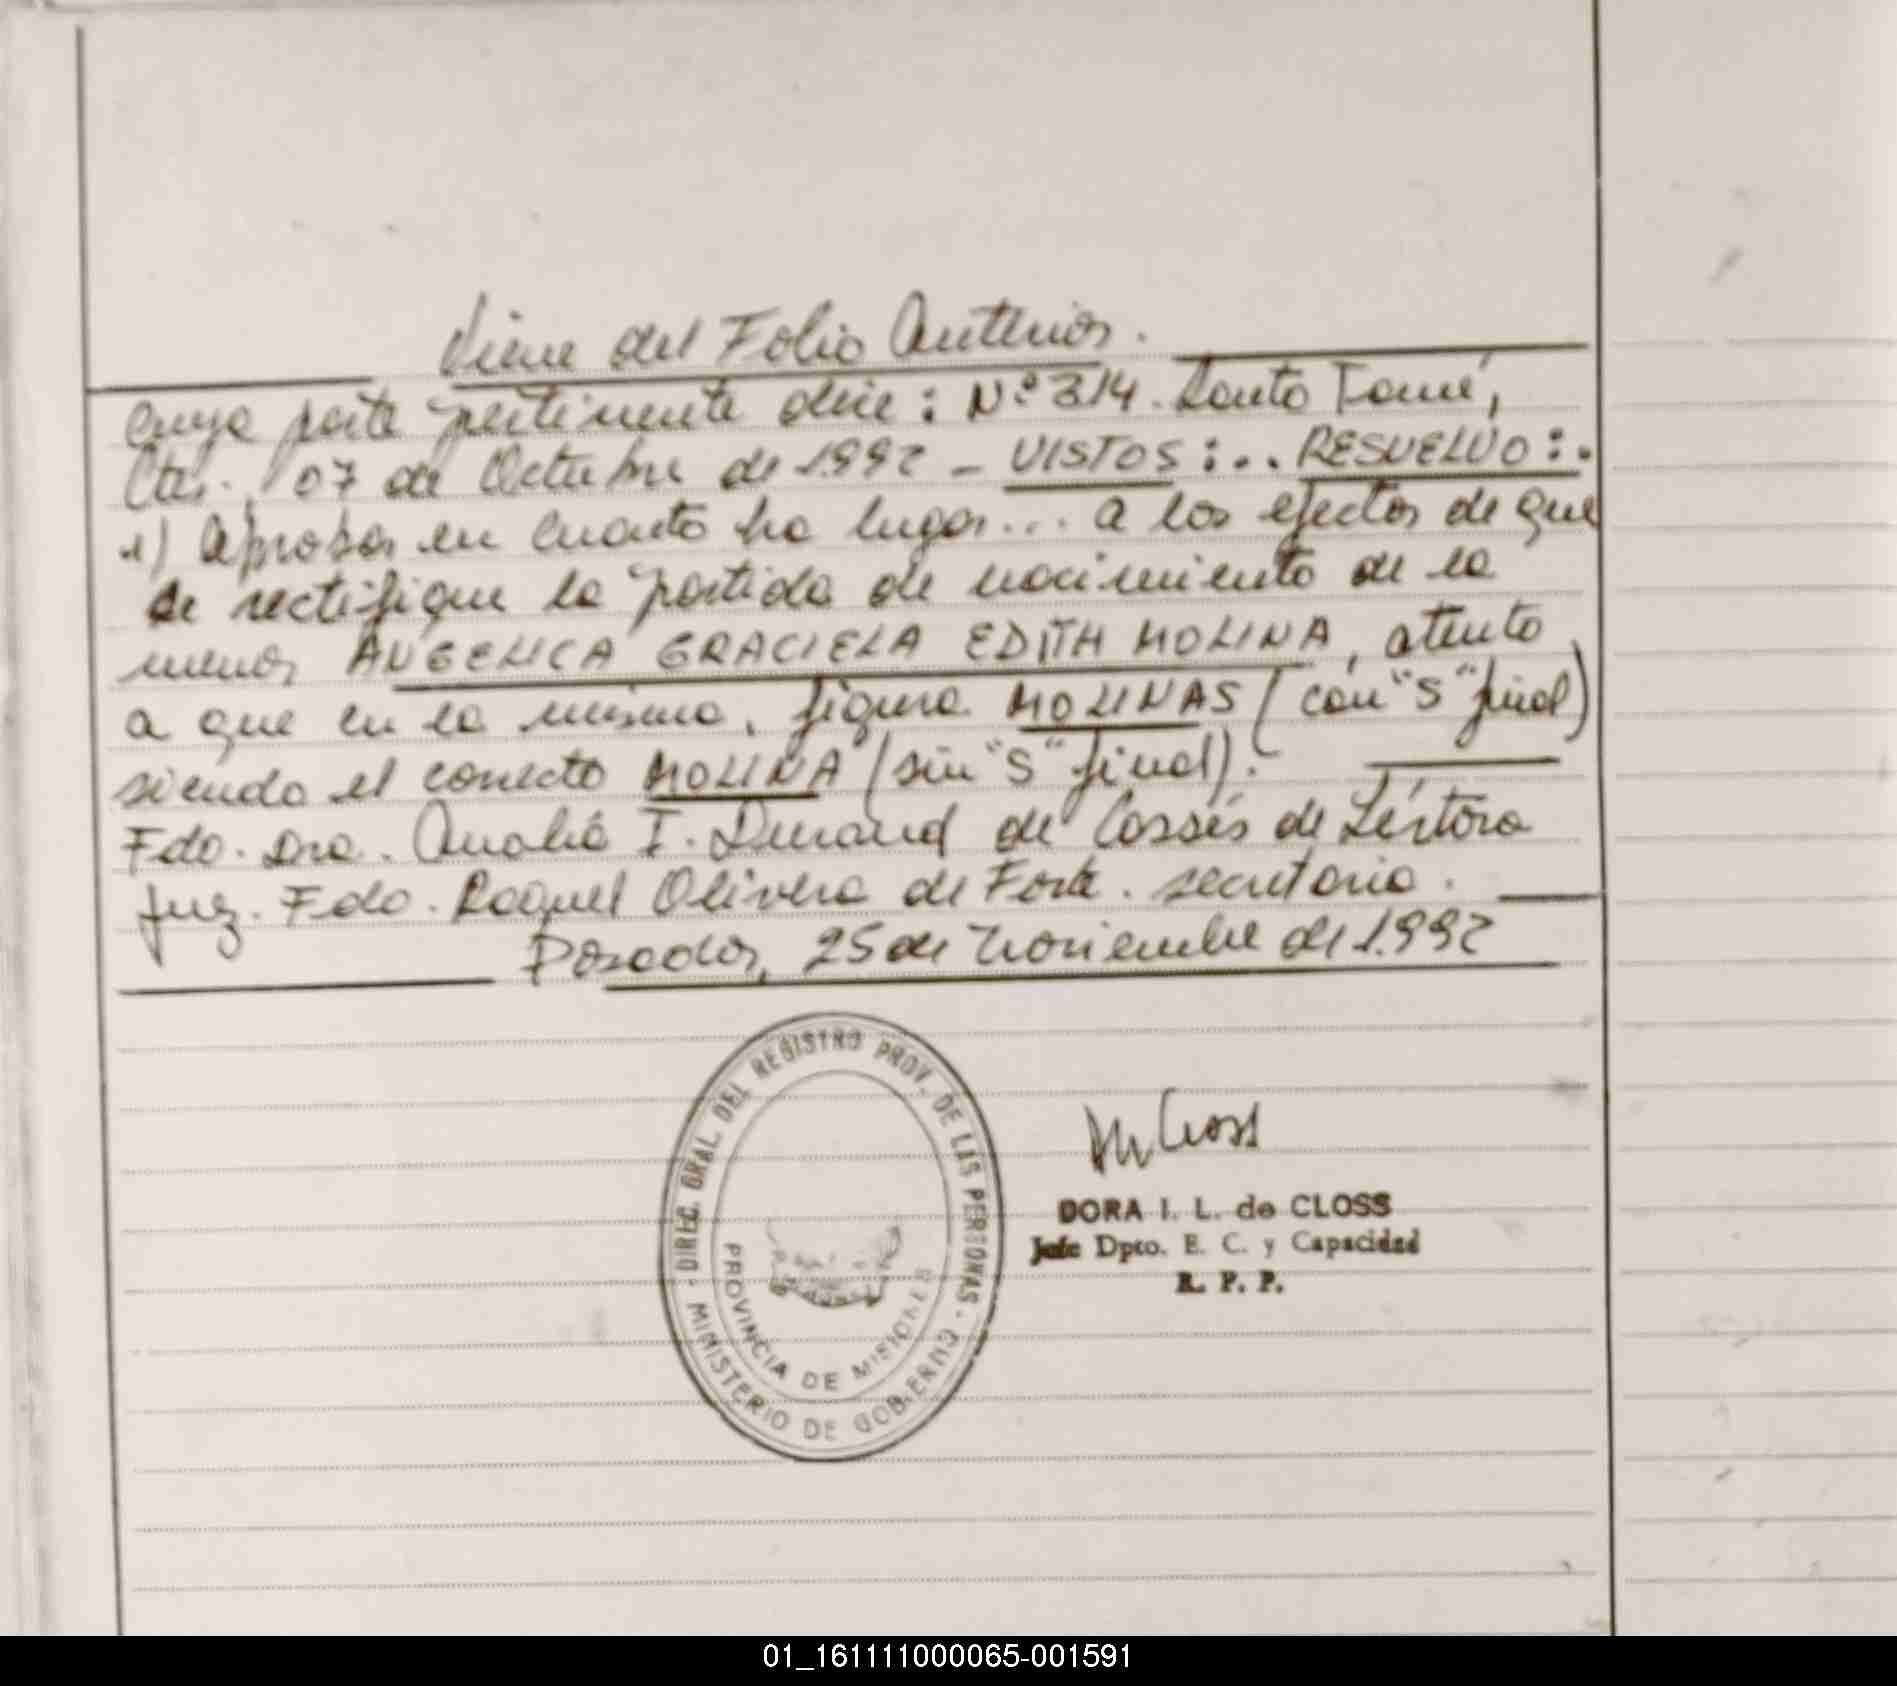 Viene del Folio Anterior.
cuya parte pertinente dice: Nº 314. Santo Tomé,
Ctes., 07 de Octubre de 1.992 - VISTOS:.. RESUELVO:.
1) Aprobar en cuanto ha lugar... a los efectos de que
se rectifique la partida de nacimiento de la
menor ANGELICA GRACIELA EDITH MOLINA, atento
a que en la misma, figura MOLINAS (con "S" final)
siendo el correcto MOLINA (sin "S" final).
Fdo. Dra. Analía I. Durand de Cassís de Léstora
Juez. Fdo. Raquel Olivera de Forte. secretaria.
Posadas, 25 de Noviembre de 1.992
DIREC. GRAL. DEL REGISTRO PROV. DE LAS PERSONAS.
MINISTERIO DE GOBIERNO
PROVINCIA DE MISIONES
DORA I. L. de CLOSS
Jefe Dpto. E. C. y Capacidad
R. P. P.
01_161111000065-001591